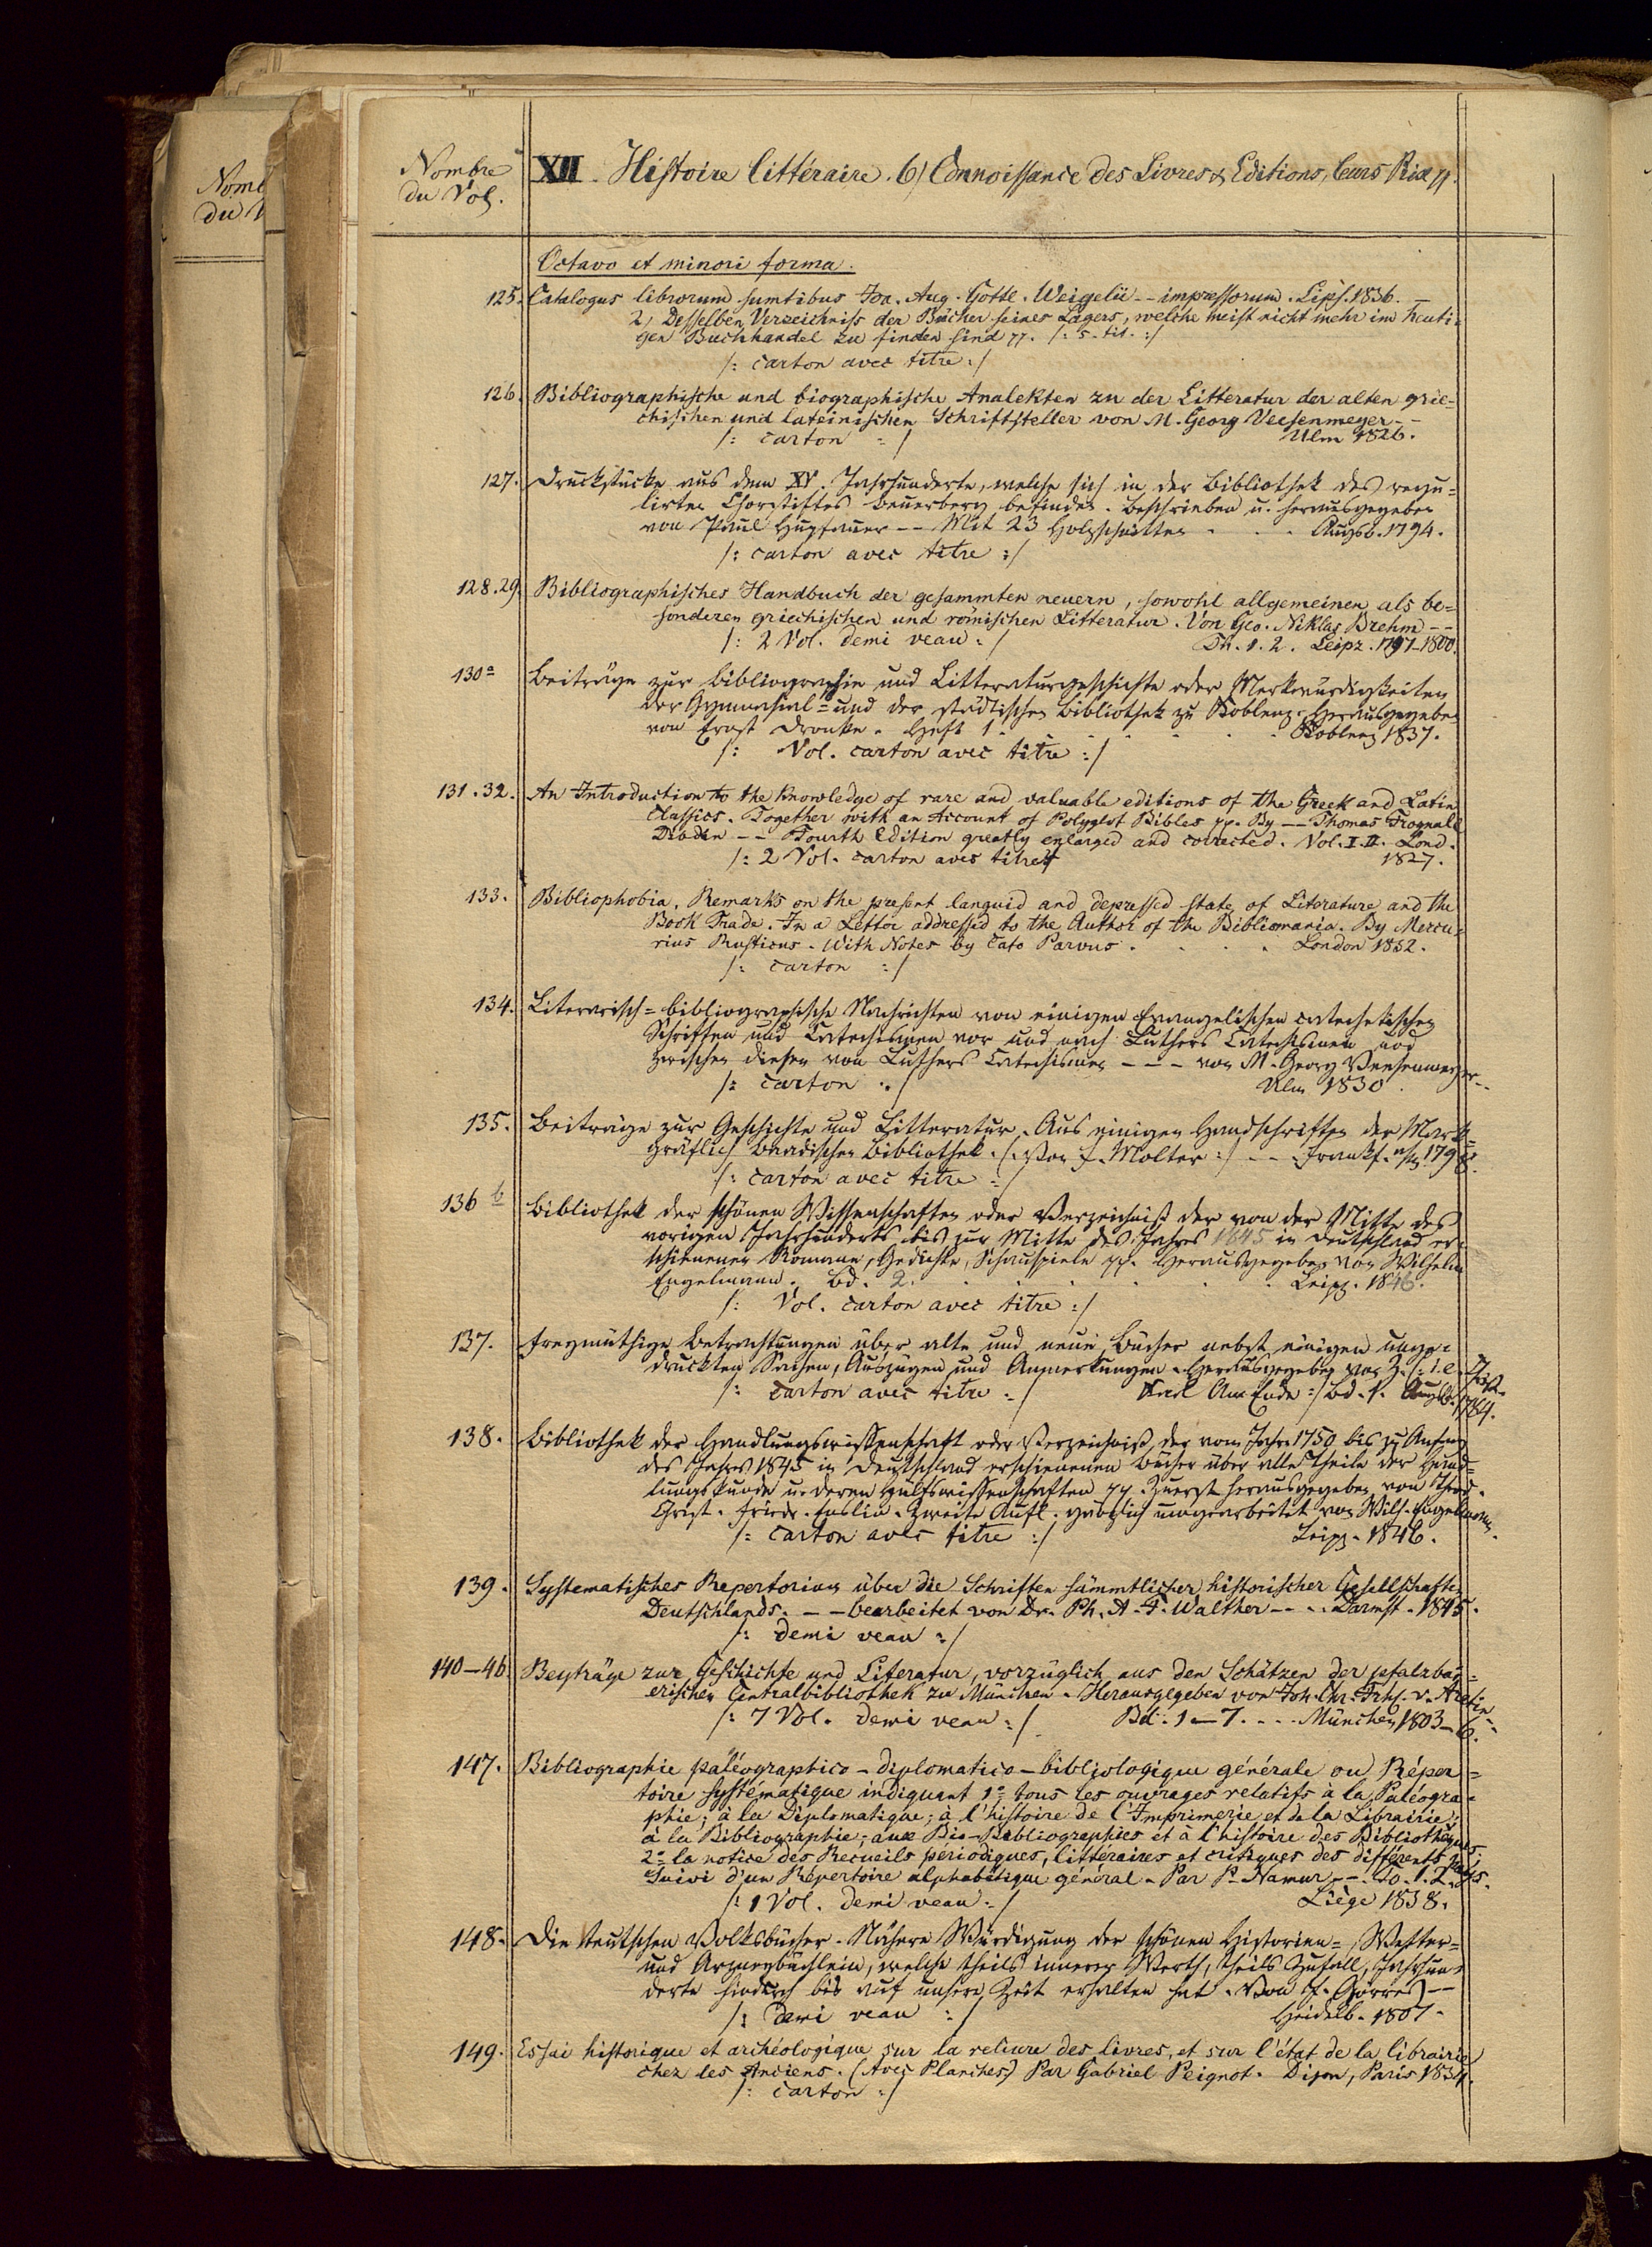 Nomb
du V
Nombre
du Vol.
XII. Histoire littéraire. 6) Connoissance des Livres & Editions, leurs Prix pp.
Octavo et minori forma.
125. Catalogus librorum sumtibus Joa. Aug. Gottl. Weigelii -- impressorum. Lips. 1836. --
2, Desselben Verzeichniss der Bücher seines Lagers, welche meist nicht mehr im heuti-
gen Buchhandel zu finden sind pp. /: s. tit. :/
/: carton avec titre :/
126. Bibliographische und biographische Analekten zu der Litteratur der alten grie-
chischen und lateinischen Schriftsteller von M. Georg Veesenmeyer --
/: carton :/ Ulm 1826.
127. Druckstücke aus dem XV. Jahrhunderte, welche sich in der Bibliothek des regu-
lirten Chorstiftes Beuerberg befinden. Beschrieben u. herausgegeben
von Paul Hupfauer -- Mit 23 Holzschnitten . . . Augsb. 1794.
/: carton avec titre :/
128.29. Bibliographisches Handbuch der gesammten neuern, sowohl allgemeinen als be-
sonderen griechischen und römischen Litteratur. Von Geo. Niklas Brehm --
/: 2 Vol. demi veau :/ Th. 1. 2. Leipz. 1797-1800.
130a Beiträge zur Bibliographie und Litteraturgeschichte oder Merkwürdigkeiten
der Gymnasial- und der städtischen Bibliothek zu Koblenz. Herausgegeben
von Ernst Dronke. Heft 1. . . . . . Koblenz 1837.
/: Vol. carton avec titre :/
131.32. An Introduction to the Knowledge of rare and valuable editions of the Greek and Latin
Classics. Together with an Account of Polyglot Bibles pp. By -- Thomas Frognall
Dibdin -- Fourth Edition greatly enlarged and corrected. Vol. I. II. Lond.
/: 2 Vol. carton avec titre :/ 1827.
133. Bibliophobia. Remarks on the present languid and depressed state of Literature and the
Book Trade. In a Letter addressed to the Author of the Bibliomania. By Mercu-
rius Rusticus. With Notes by Cato Parvus . . . . London 1832.
/: carton :/
134. Literarisch-bibliographische Nachrichten von einigen Evangelischen catechetischen
Schriften und Catechismen vor und nach Luthers Catechismen und
zwischen diesen von Luthers Catechismen --- von M. Georg Veesenmeyer --
/: carton :/ Ulm 1830.
135. Beiträge zur Geschichte und Litteratur. Aus einigen Handschriften der Mark-
gräflich Baadischen Bibliothek. /: Von F. Molter :/ --- Frankf. a/M. 1798.
/: carton avec titre :/
136 b Bibliothek der schönen Wissenschaften oder Verzeichniß der von der Mitte des
vorigen Jahrhunderts bis zur Mitte des Jahres 1845 in Deutschland er-
schienenen Romane, Gedichte, Schauspiele pp. Herausgegeben von Wilhelm
Engelmann. Bd. 2. . . . . . . Leipz. 1846.
/: Vol. carton avec titre :/
137. Freymüthige Betrachtungen über alte und neue Bücher nebst einigen unge-
druckten Sachen, Auszügen und Anmerkungen. Herausgegeben von
/: carton avec titre :/ Karl Am Ende :/ Bd. 1. Augsb. 1784.
138. Bibliothek der Handlungswissenschaft oder Verzeichniß der vom Jahre 1750 bis zu Anfang
des Jahres 1845 in Deutschland erschienenen Bücher über alle Theile der Hand-
lungskunde u. deren Hülfswissenschaften pp. Zuerst herausgegeben von Theod.
Christ. Friedr. Enslin. Zweite Aufl. gänzlich umgearbeitet von Wilh. Engelmann.
/: carton avec titre :/ Leipz. 1846.
139. Systematisches Repertorium über die Schriften sämmtlicher historischer Gesellschaften
Deutschlands. -- bearbeitet von Dr. Ph. A. F. Walther --- Darmst. 1845.
/: demi veau :/
140-46. Beyträge zur Geschichte und Literatur, vorzüglich aus den Schätzen der pfalzbai-
erischen Centralbibliothek zu München. Herausgegeben von Joh. Chr. Frhf. v. Aretin --
/: 7 Vol. demi veau :/ Bd. 1-7. ... München 1803-6.
147. Bibliographie paléographico-diplomatico-bibliologique générale ou Réper-
toire systématique indiquant 1o tous les ouvrages relatifs à la Paléogra-
phie; à la Diplomatique; à l'histoire de l'Imprimerie et de la Librairie;
à la Bibliographie; aux Bio-Bibliographies et à l'histoire des Bibliothèques;
2o la notice des Recueils périodiques, littéraires et critiques des différents pays.
Suivi d'un Répertoire alphabétique général. Par P. Namur --. To. 1. 2.
/: 1 Vol. demi veau :/ Liège 1838.
148. Die teutschen Volksbücher. Nähere Würdigung der schönen Historien-, Wetter-
und Arzneybüchlein, welche theils innerer Werth, theils Zufall, Jahrhun-
derte hindurch bis auf unsere Zeit erhalten hat. Von J. Görres --
/: demi veau :/ Heidelb. 1807.
149. Essai historique et archéologique sur la reliure des livres, et sur l'état de la librairie
chez les Anciens. (Avec Planches) Par Gabriel Peignot. Dijon, Paris 1834.
/: carton :/